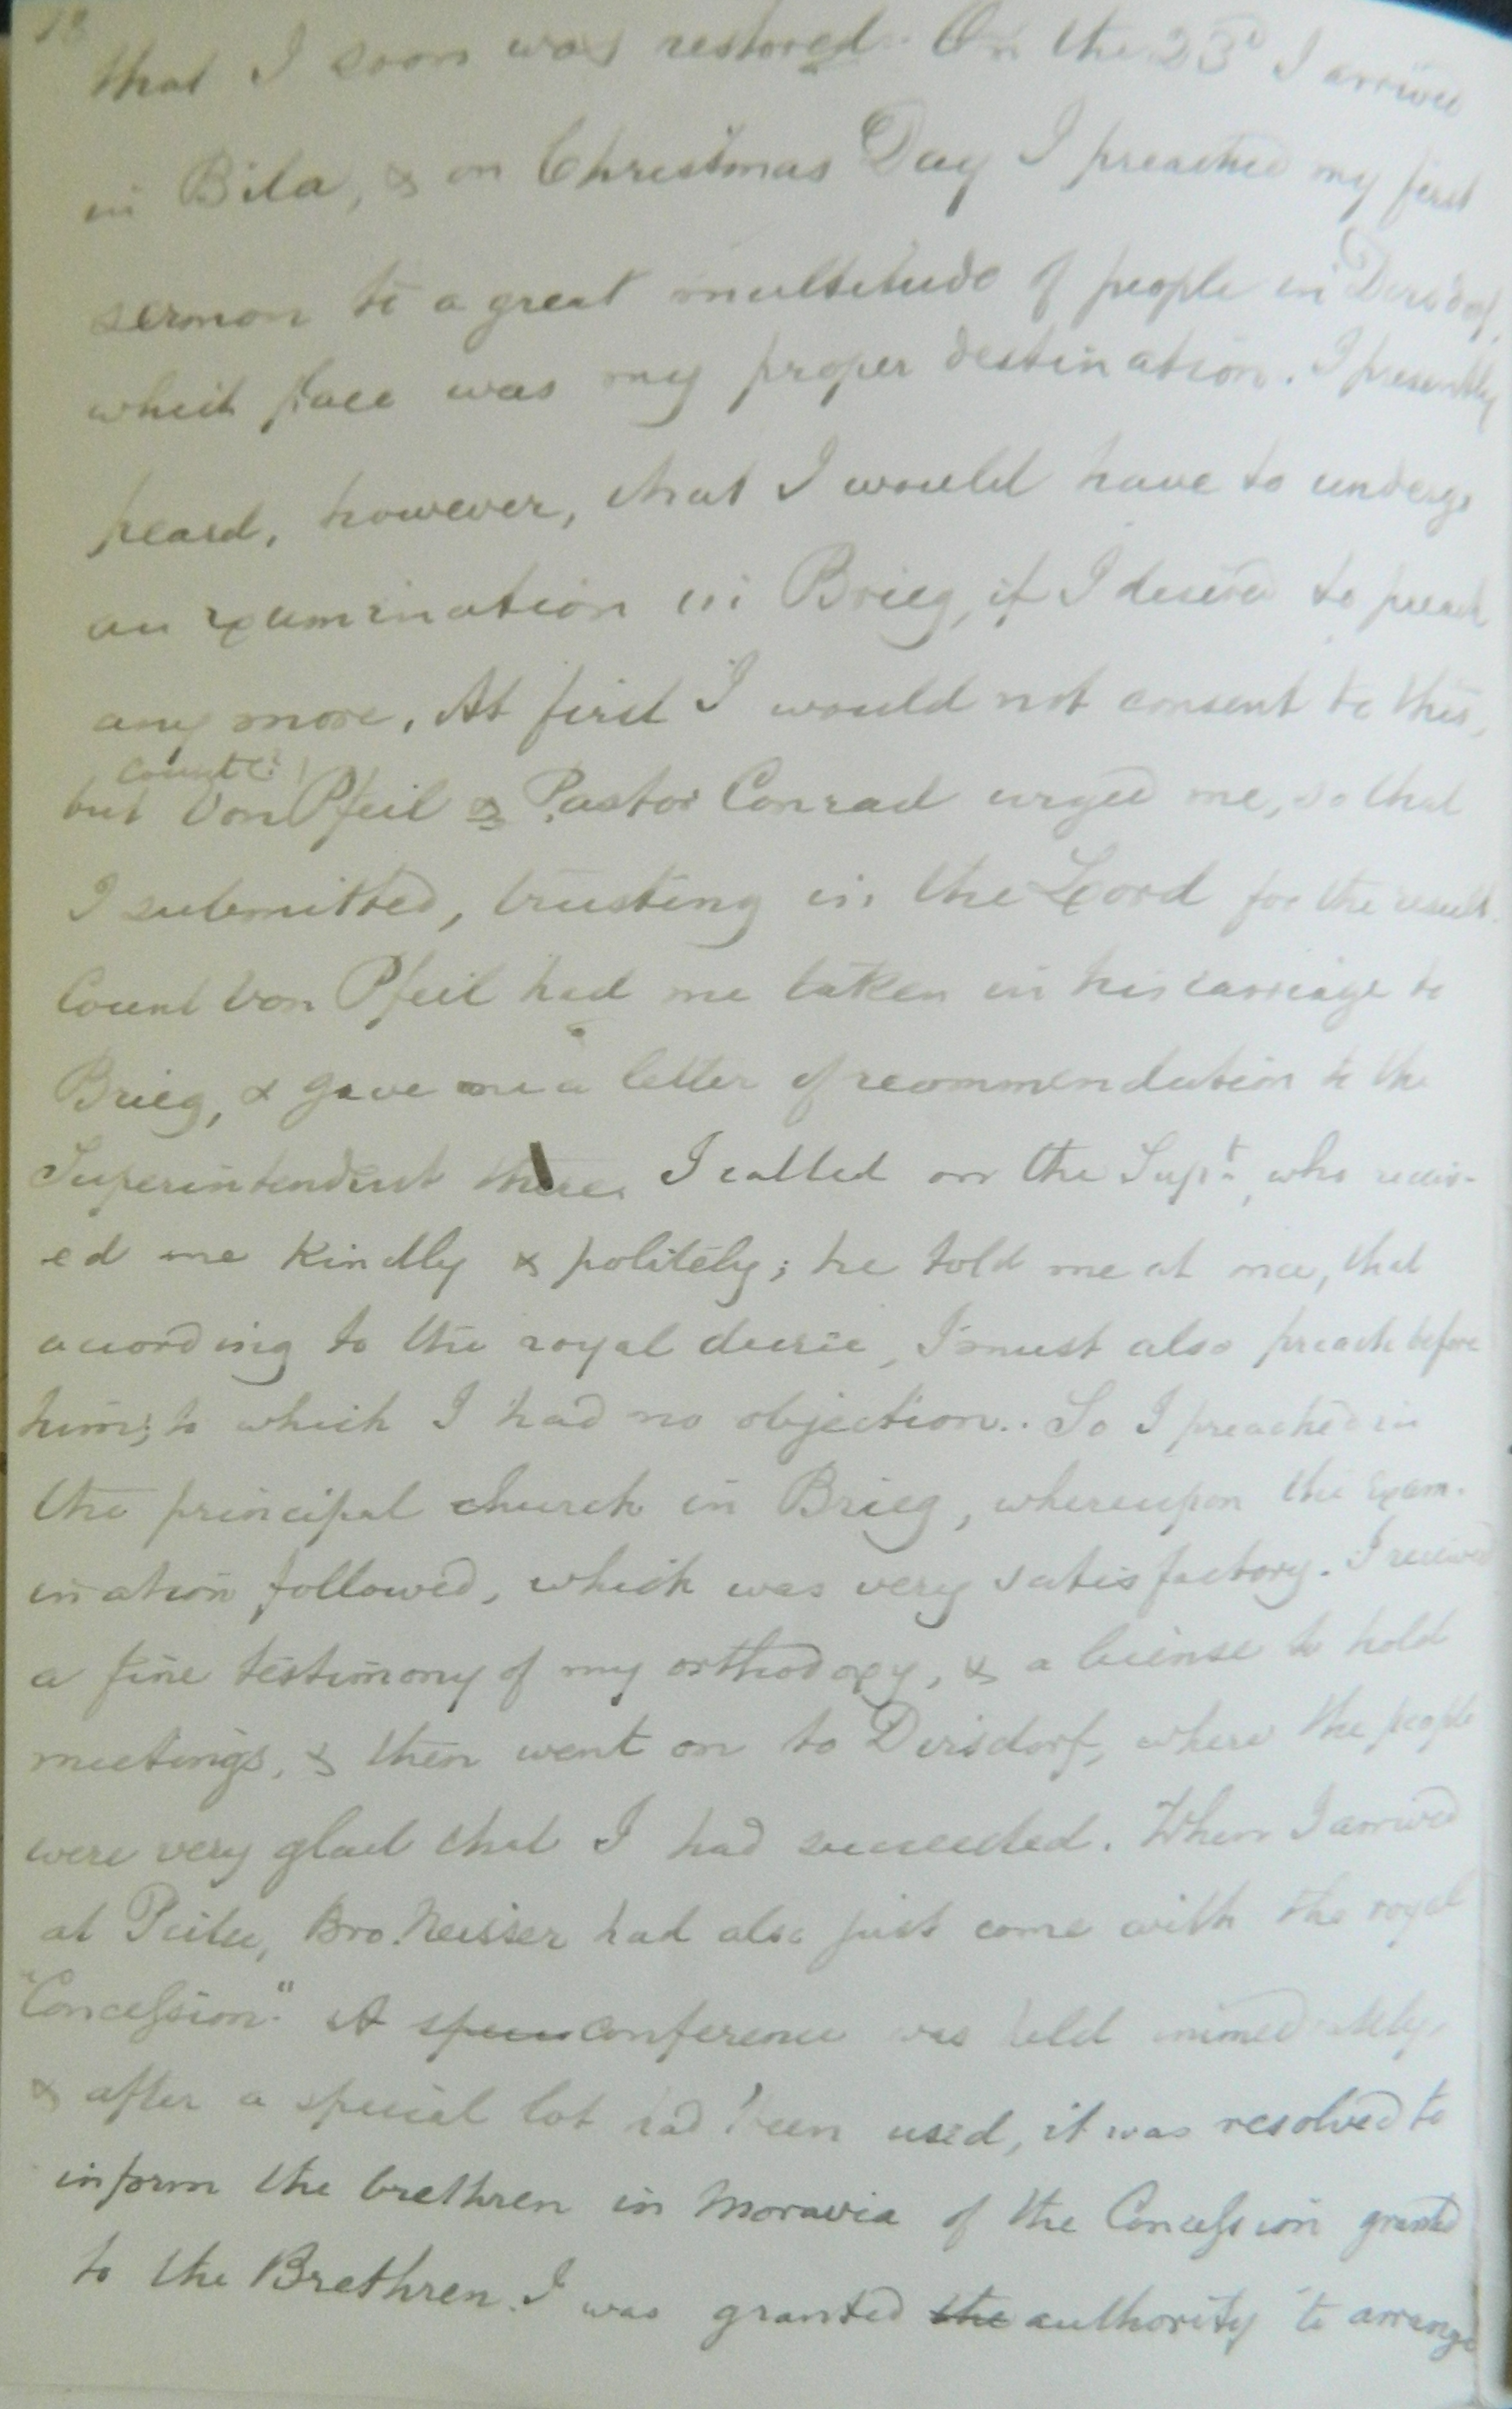 that I soon was restored. On the 23d I arrived
in Bila, & on Christmas Day I preached my first
sermon to a great multitude of people in Dirsdorf,
which place was my proper destination. I presently
heard, however, that I would have to undergo
an examination in Brieg, if I desired to preach
any more. At first I would not consent to this,
Count
but Von Pfeil & Pastor Conrad urged me, so that
I submitted, trusting in the Lord for the result.
Count Von Pfeil had me taken in his carriage to
Brieg, & gave me a letter of recommendation to the
Superintendent there. I called on the Supt., who receiv-
ed me kindly & politely; he told me at once, that
according to the royal decree, I must also preach before
him; to which I had no objection. So I preached in
the principal church in Brieg, whereupon the exam-
ination followed, which was very satisfactory. I received
a fine testimony of my orthodoxy, & a license to hold
meetings, & then went on to Dirsdorf, where the people
were very glad that I had succeeded. When I arrived
at Peilu, Bro. Neisser had also just come with the royal
"Concession." A conference was held immediately,
& after a special lot had been used, it was resolved to
inform the brethren in Moravia of the Concession granted
to the Brethren. I was granted the authority to arrange